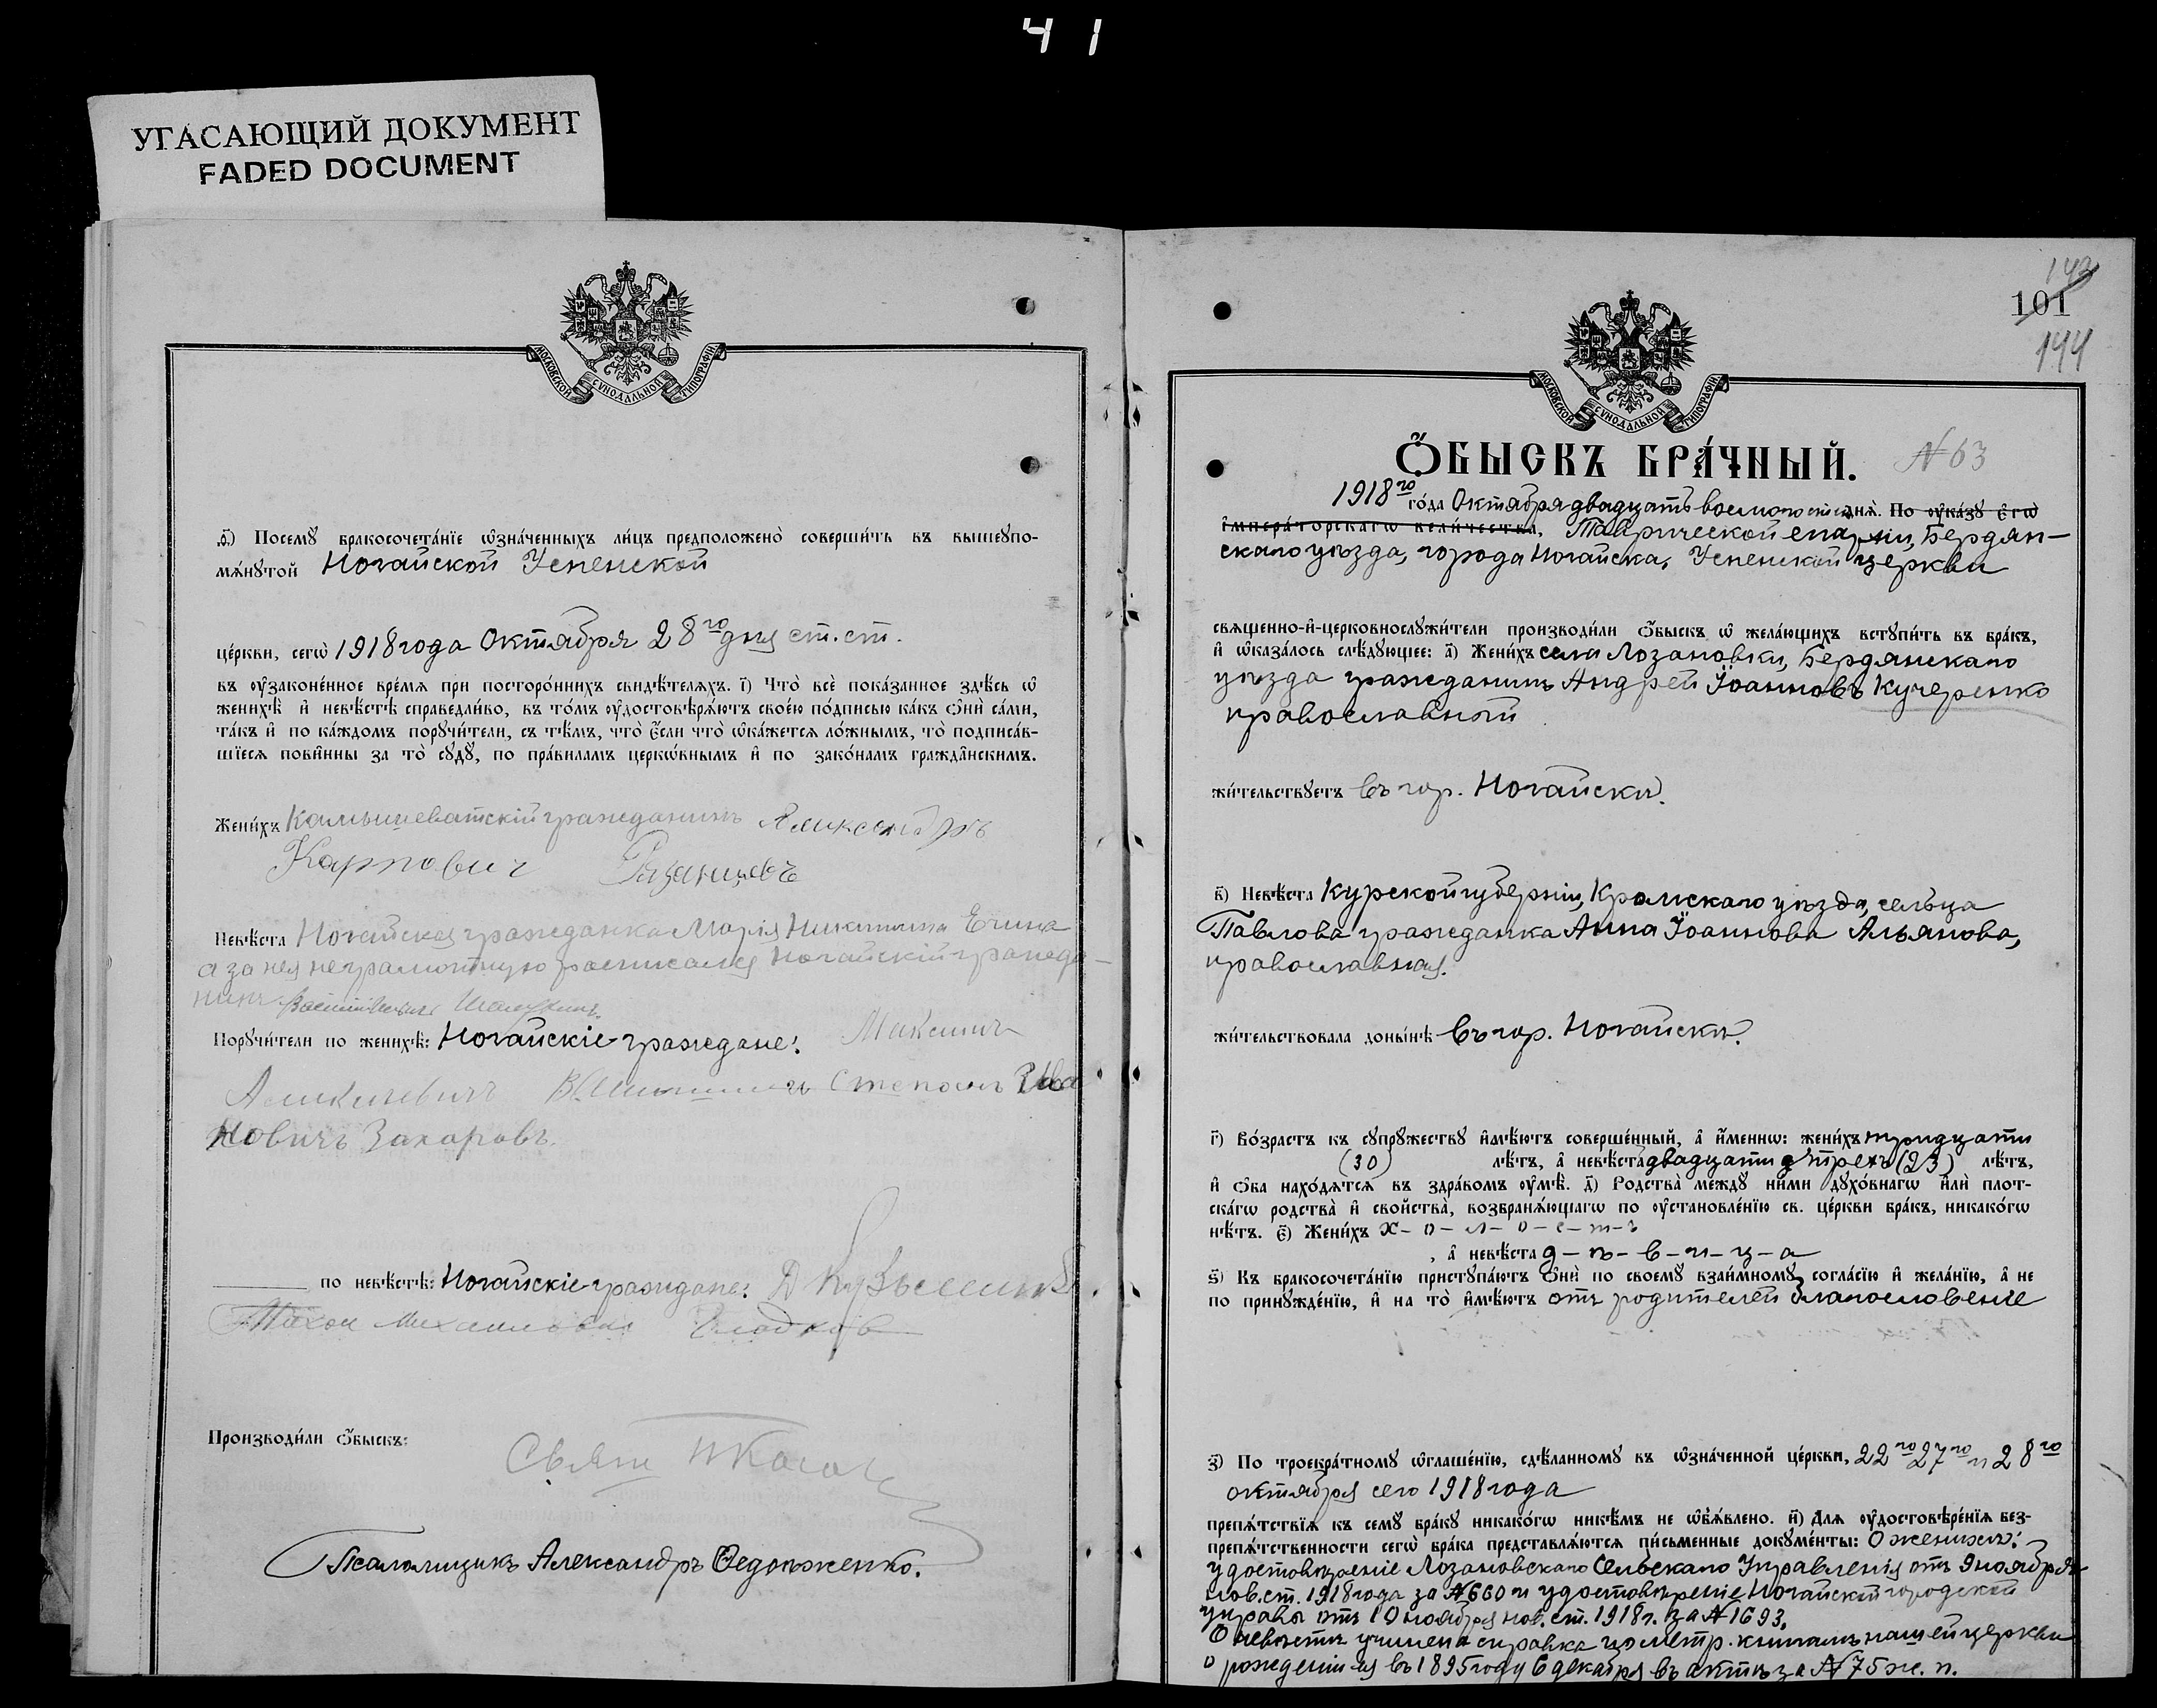 41
УГАСАЮЩИЙ ДОКУМЕНТ
FADED DOCUMENT
МОСКОВСКОЙ СѴНОДАЛЬНОЙ ТИПОГРАФІИ
д҃) Посемꙋ бракосочета́нїе ѡ҆зна́ченныхъ ли́цъ предположено̀ соверши́ть въ вышеꙋпо-
мѧ́нꙋтой Ногайской Успенской
це́ркви, сегѡ̀ 1918 года Октября 28го дня ст. ст.
въ ᲂу҆зако́ненное вре́мѧ при посторо́ннихъ свидѣ́телѧхъ. і҃) Что̀ всѐ пока́занное здѣ́сь ѡ҆
женихѣ̀ и҆ невѣ́стѣ справедли́во, въ то́мъ ᲂу҆достовѣрѧ́ютъ свое́ю по́дписью ка́къ ѻ҆нѝ са́ми,
та́къ и҆ по ка́ждомъ порꙋчи́тели, съ тѣ́мъ, что̀ є҆́сли что̀ ѡ҆ка́жетсѧ ло́жнымъ, то̀ подписа́в-
шїесѧ пови́нны за то̀ сꙋдꙋ̀, по пра́виламъ церкѡ́внымъ и҆ по зако́намъ гражда́нскимъ.
Жени́хъ Камышеватскій гражданинъ Александръ
Карпович Рязанцевъ
Невѣ́ста Ногайская гражданка Марія Никитина Ечина
а за нея неграмотную росписался Ногайскій гражда-
нинъ
Порꙋчи́тели по женихѣ̀: Ногайскіе граждане: Максимъ
Степанъ Ива
новичъ Захаровъ.
по невѣ́стѣ: Ногайскіе граждане:
Тихон Михайлович Гладков
Производи́ли ѻ҆́быскъ:
Свящ
Псаломщикъ Александръ Ѳедоженко.
142
101
144
МОСКОВСКОЙ СѴНОДАЛЬНОЙ ТИПОГРАФІИ
Ѻ҆́БЫСКЪ БРА́ЧНЫЙ. № 63
1918го го́да Октября двадцать восьмого ст. ст. днѧ̀. По ᲂу҆ка́зꙋ є҆гѡ̀
и҆мпера́торскагѡ вели́чества, Таврической епархіи, Бердян-
скаго уѣзда, города Ногайска, Успенской церкви
свѧще́нно-и҆-церковнослꙋжи́тели производи́ли ѻ҆́быскъ ѡ҆ жела́ющихъ встꙋпи́ть въ бра́къ,
и҆ ѡ҆каза́лось слѣ́дꙋющее: а҃) Жени́хъ села Лозановки, Бердянскаго
уѣзда гражданинъ Андрей Іоанновъ Кучеренко
православный
жи́тельствꙋетъ въ гор. Ногайскѣ.
в҃) Невѣ́ста Курской губерніи, Кромскаго уѣзда, сельца
Павлова гражданка Анна Іоаннова Альянова,
православная.
жи́тельствовала доны́нѣ въ гор. Ногайскѣ.
г҃) Во́зрастъ къ сꙋпрꙋ́жествꙋ и҆мѣ́ютъ соверше́нный, а҆ и҆́меннѡ: жени́хъ тридцати
(30) лѣ́тъ, а҆ невѣ́ста двадцати трехъ (23) лѣ́тъ,
и҆ ѻ҆́ба нахо́дѧтсѧ въ здра́вомъ ᲂу҆мѣ̀. д҃) Родства̀ междꙋ̀ ни́ми дꙋхо́внагѡ и҆лѝ плот-
ска́гѡ родства̀ и҆ свойства̀, возбранѧ́ющагѡ по ᲂу҆становле́нїю св. це́ркви бра́къ, никако́гѡ
нѣ́тъ. є҃) Жени́хъ х-о-л-о-с-т-ъ
, а҆ невѣ́ста д-ѣ-в-и-ц-а
ѕ҃) Къ бракосочета́нїю пристꙋпа́ютъ ѻ҆нѝ по своемꙋ̀ взаи́мномꙋ согла́сїю и҆ жела́нїю, а҆ не
по принꙋжде́нїю, и҆ на то̀ и҆мѣ́ютъ отъ родителей благословеніе
з҃) По троекра́тномꙋ ѡ҆глаше́нїю, сдѣ́ланномꙋ въ ѡ҆зна́ченной це́ркви, 22го 27го и 28го
октября сего 1918 года
препѧ́тствїѧ къ семꙋ̀ бра́кꙋ никако́гѡ никѣ́мъ не ѡ҆б̾ѧ́влено. и҃) Длѧ ᲂу҆достовѣре́нїѧ без-
препѧ́тственности сегѡ̀ бра́ка представлѧ́ютсѧ пи́сьменные докꙋме́нты: О женихѣ:
удостовѣреніе Лозановскаго Сельскаго Управленія отъ 9 ноября
нов. ст. 1918 года за № 660 и удостовѣреніе Ногайской городской
управы отъ 10 ноября нов. ст. 1918 г. за № 1693.
О невѣстѣ учинена справка по метр. книгамъ нашей церкви
о рожденіи ея въ 1895 году 6 декабря въ актѣ за № 75 ж. п.